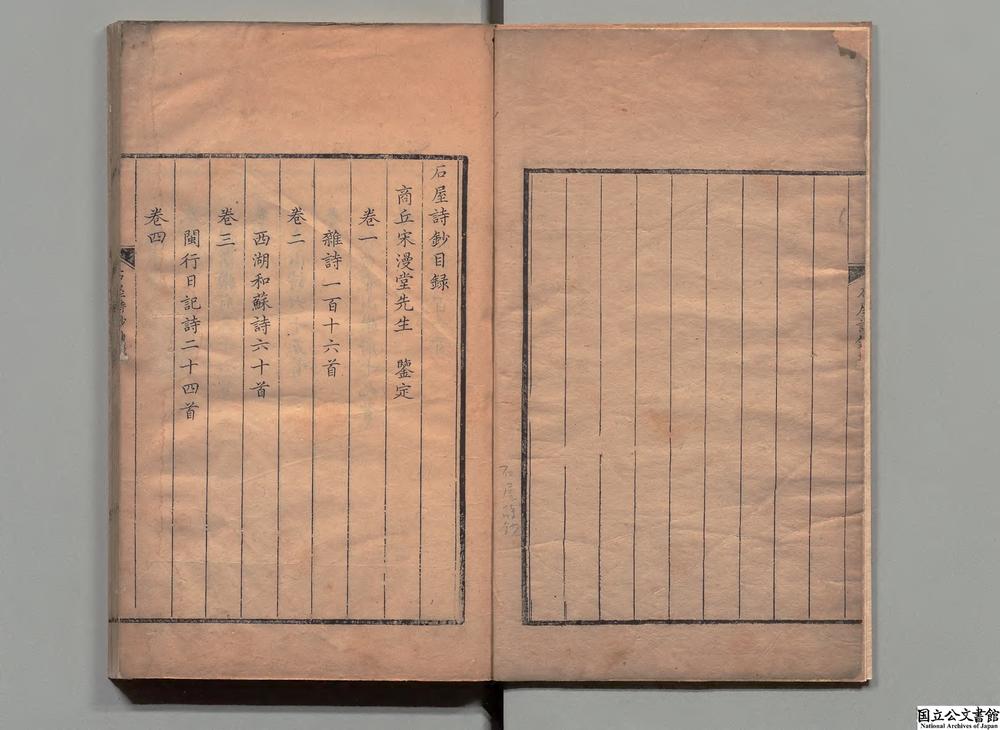 石屋詩鈔
石屋詩鈔目録
商丘宋漫堂先生　鑒定
卷一
雜詩一百十六首
卷二
西湖和蘇詩六十首
卷三
閩行日記詩二十四首
卷四
石屋詩鈔
国立公文書館
National Archives of Japan